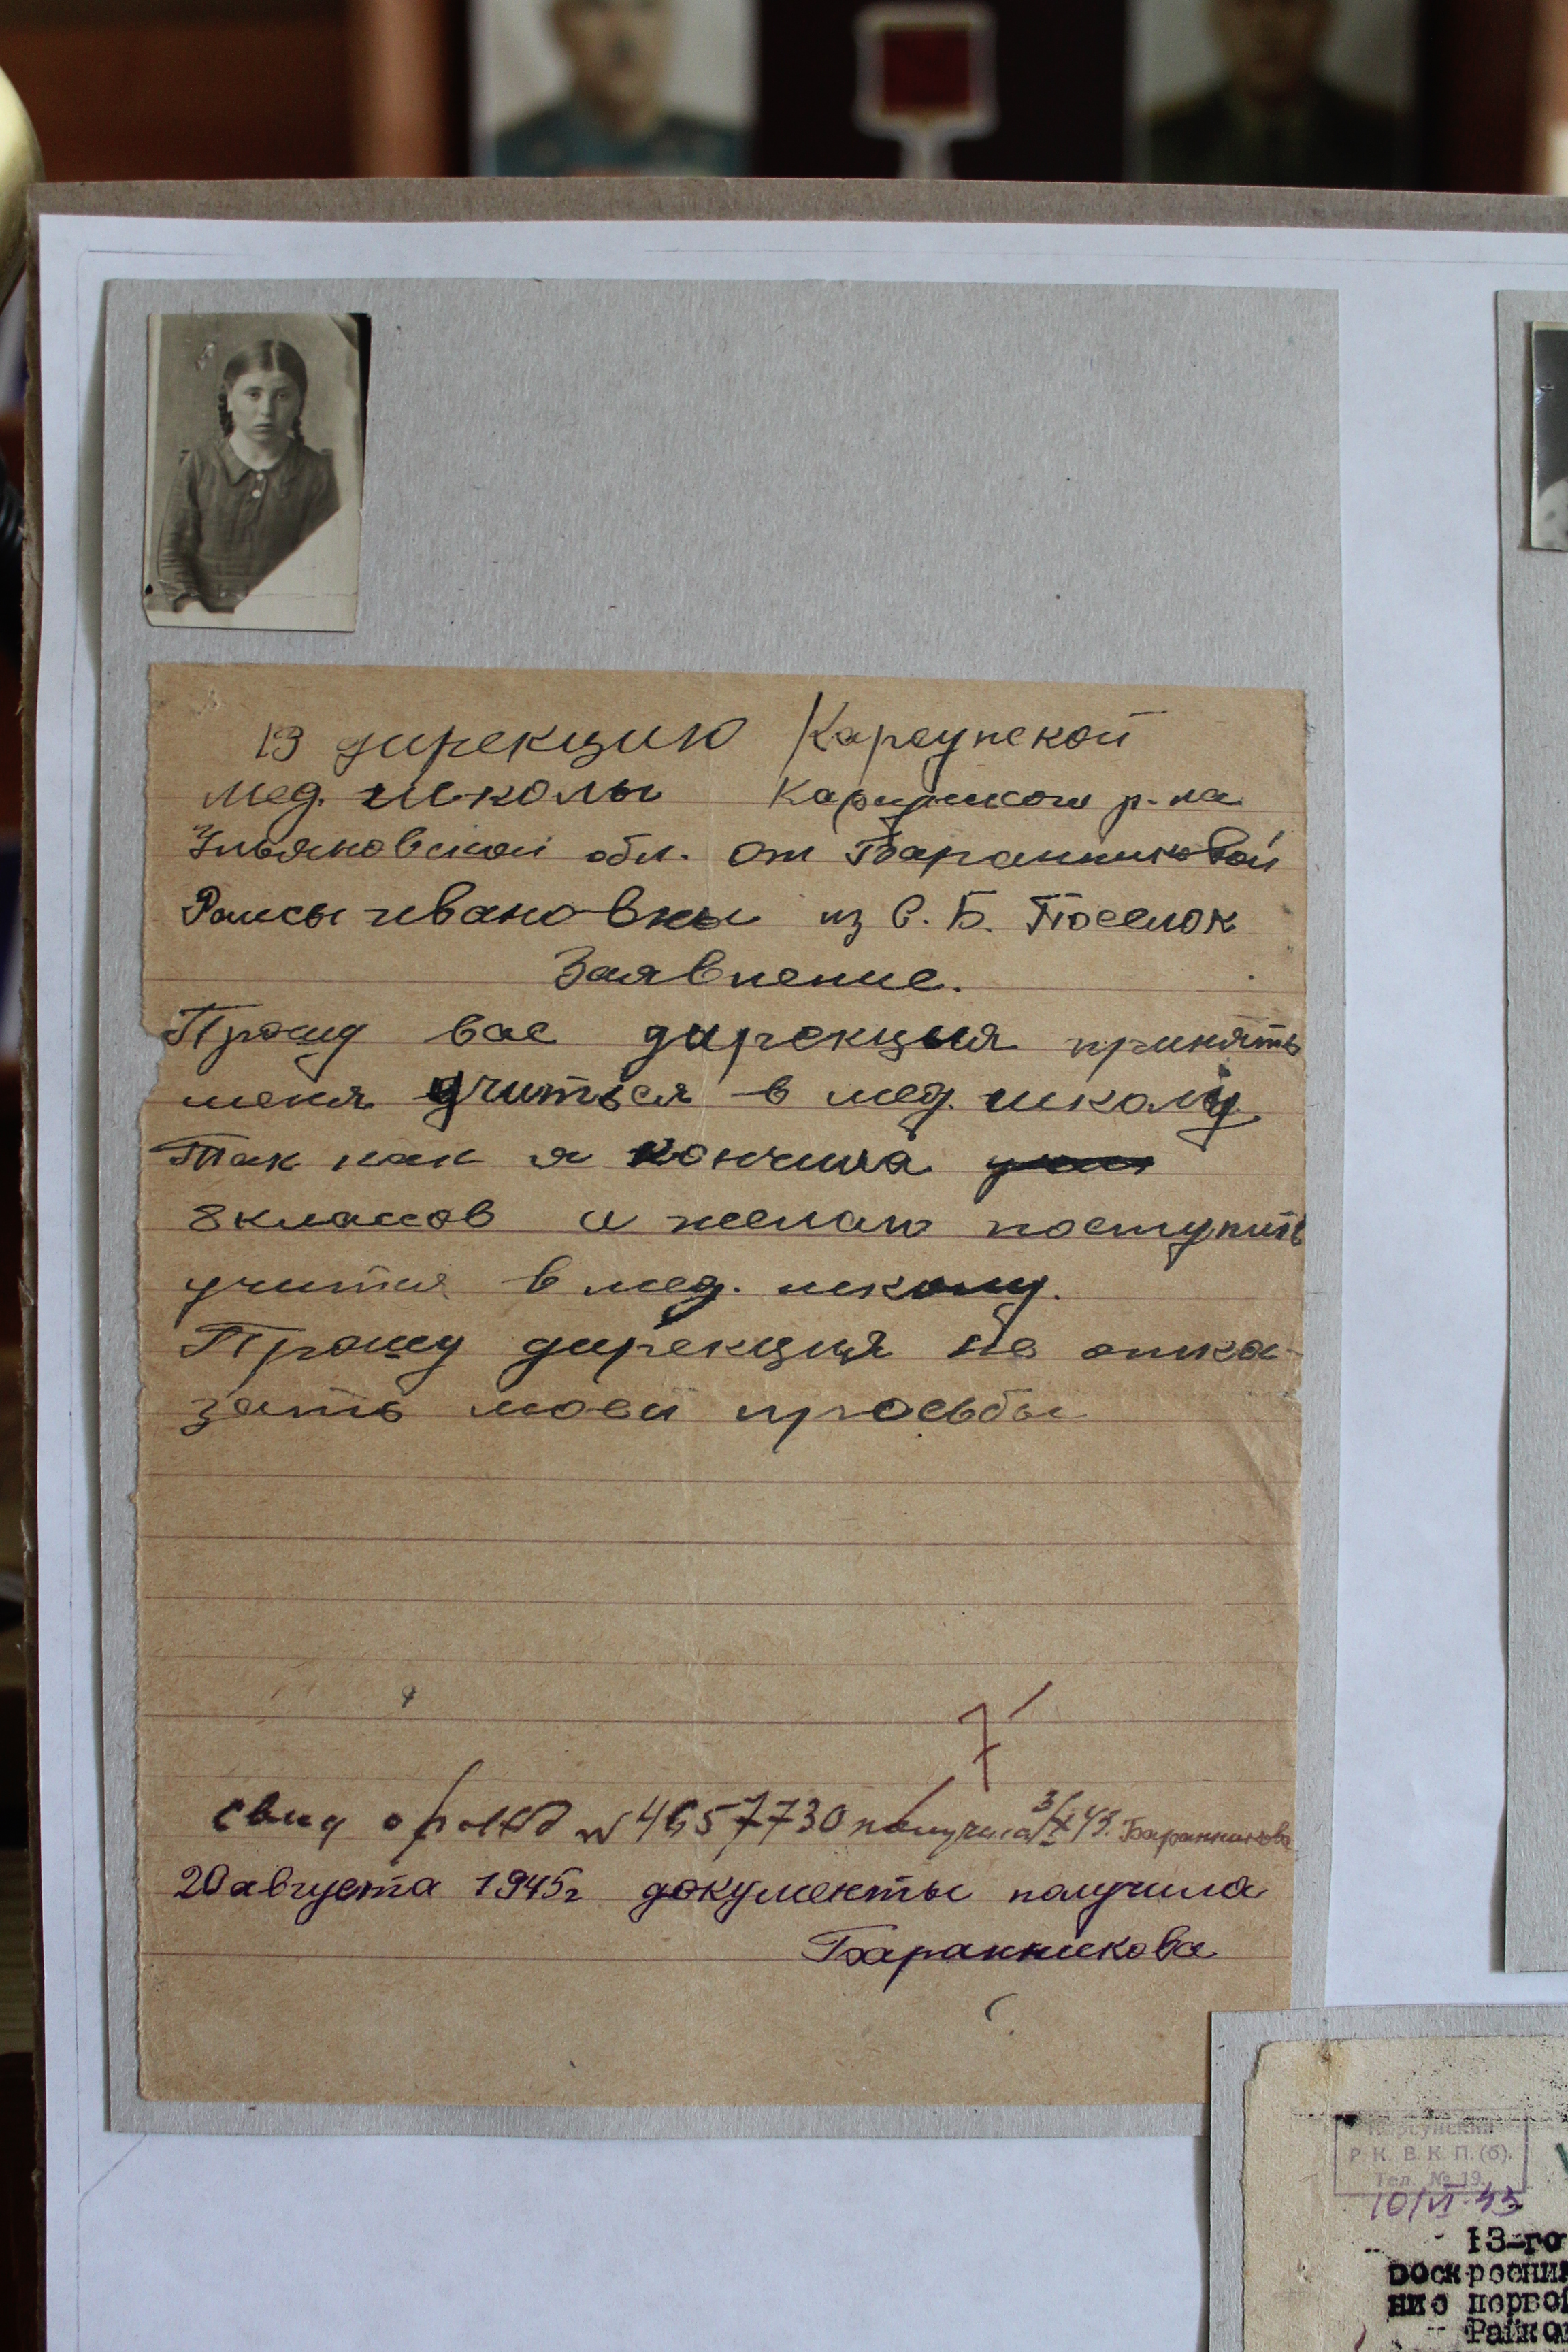 В дирекцию Карсунской
мед. школы Карсунского р-на
Ульяновской обл. от Баранниковой
Раисы Ивановны из С. Б. Поселок
Заявление.
Прошу вас дирекция принять
меня учиться в мед. школу
Так как я кончила
8 классов и желаю поступить
учится в мед. школу.
Прошу дирекция не отка-
зать моей просьбы
7
свид о рожд N 4657730 получила 3/X 43. Баранникова
20 августа 1945г документы получила
Баранникова
Карсунский
Р. К. В. К. П. (б).
Тел. № 19.
10/VI-45
13-го
Райко